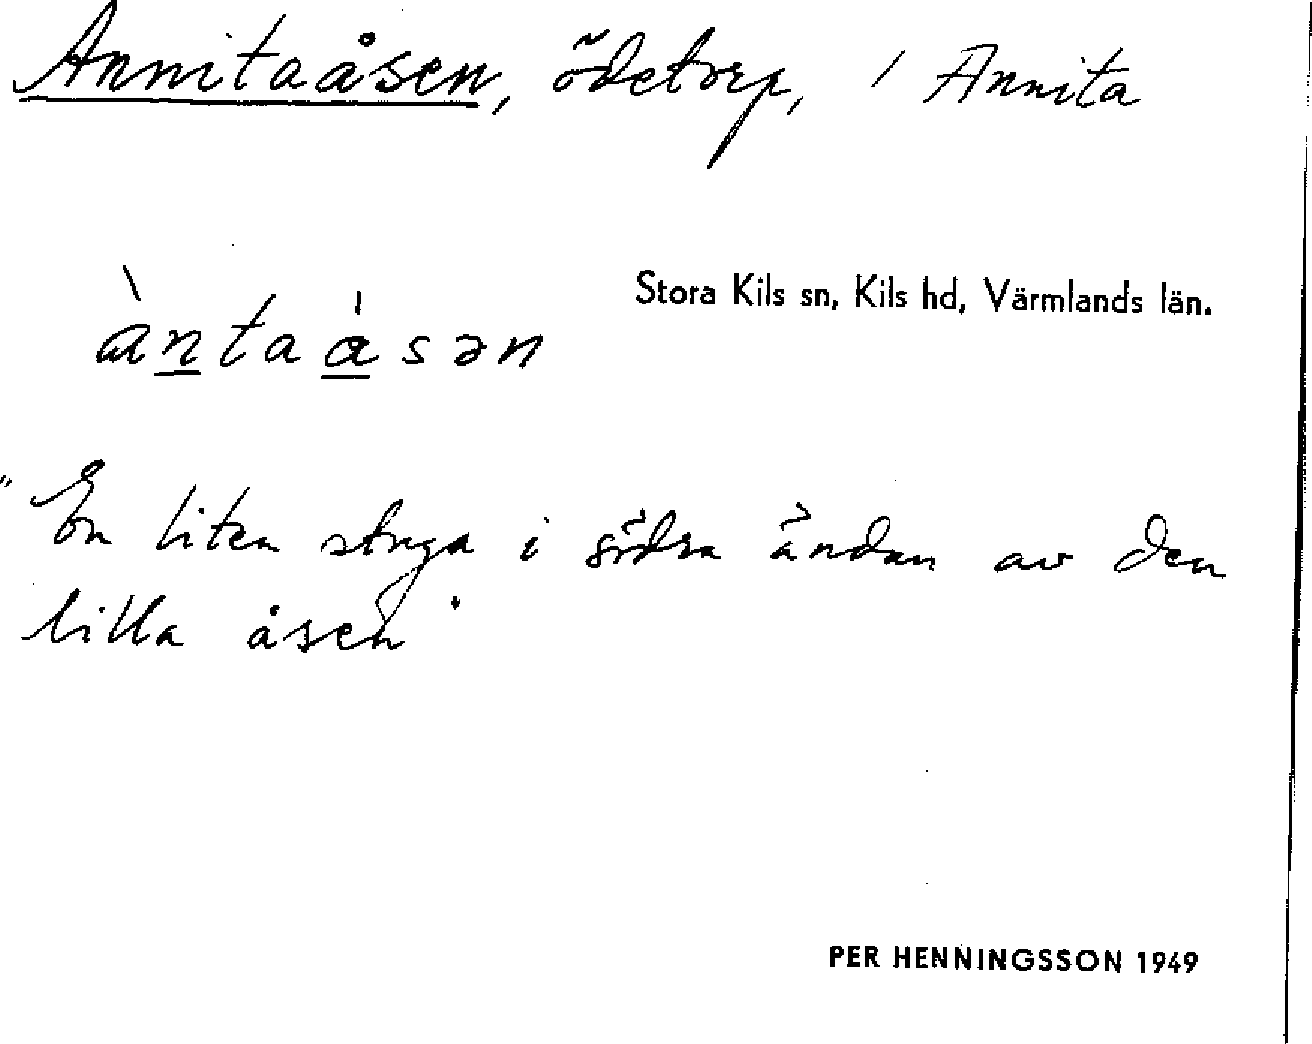 Annitaåsen, ödetorp, / Annita
Stora Kils sn, Kils hd, Värmlands län.
àntaásən
"En liten stuga i södra ändan av den
lilla åsen"
PER HENNINGSSON 1949